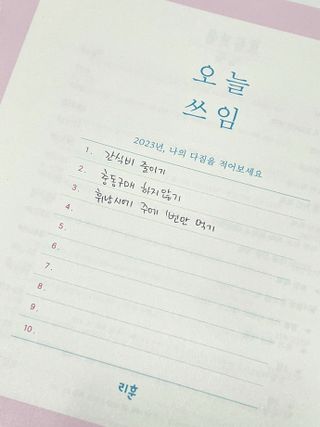 오늘
쓰임
2023년, 나의 다짐을 적어보세요
1. 간식비 줄이기
2. 충동구매 하지않기
3. 휘낭시에 주에 1번만 먹기
4.
5.
6.
7.
8.
9.
10.
리훈